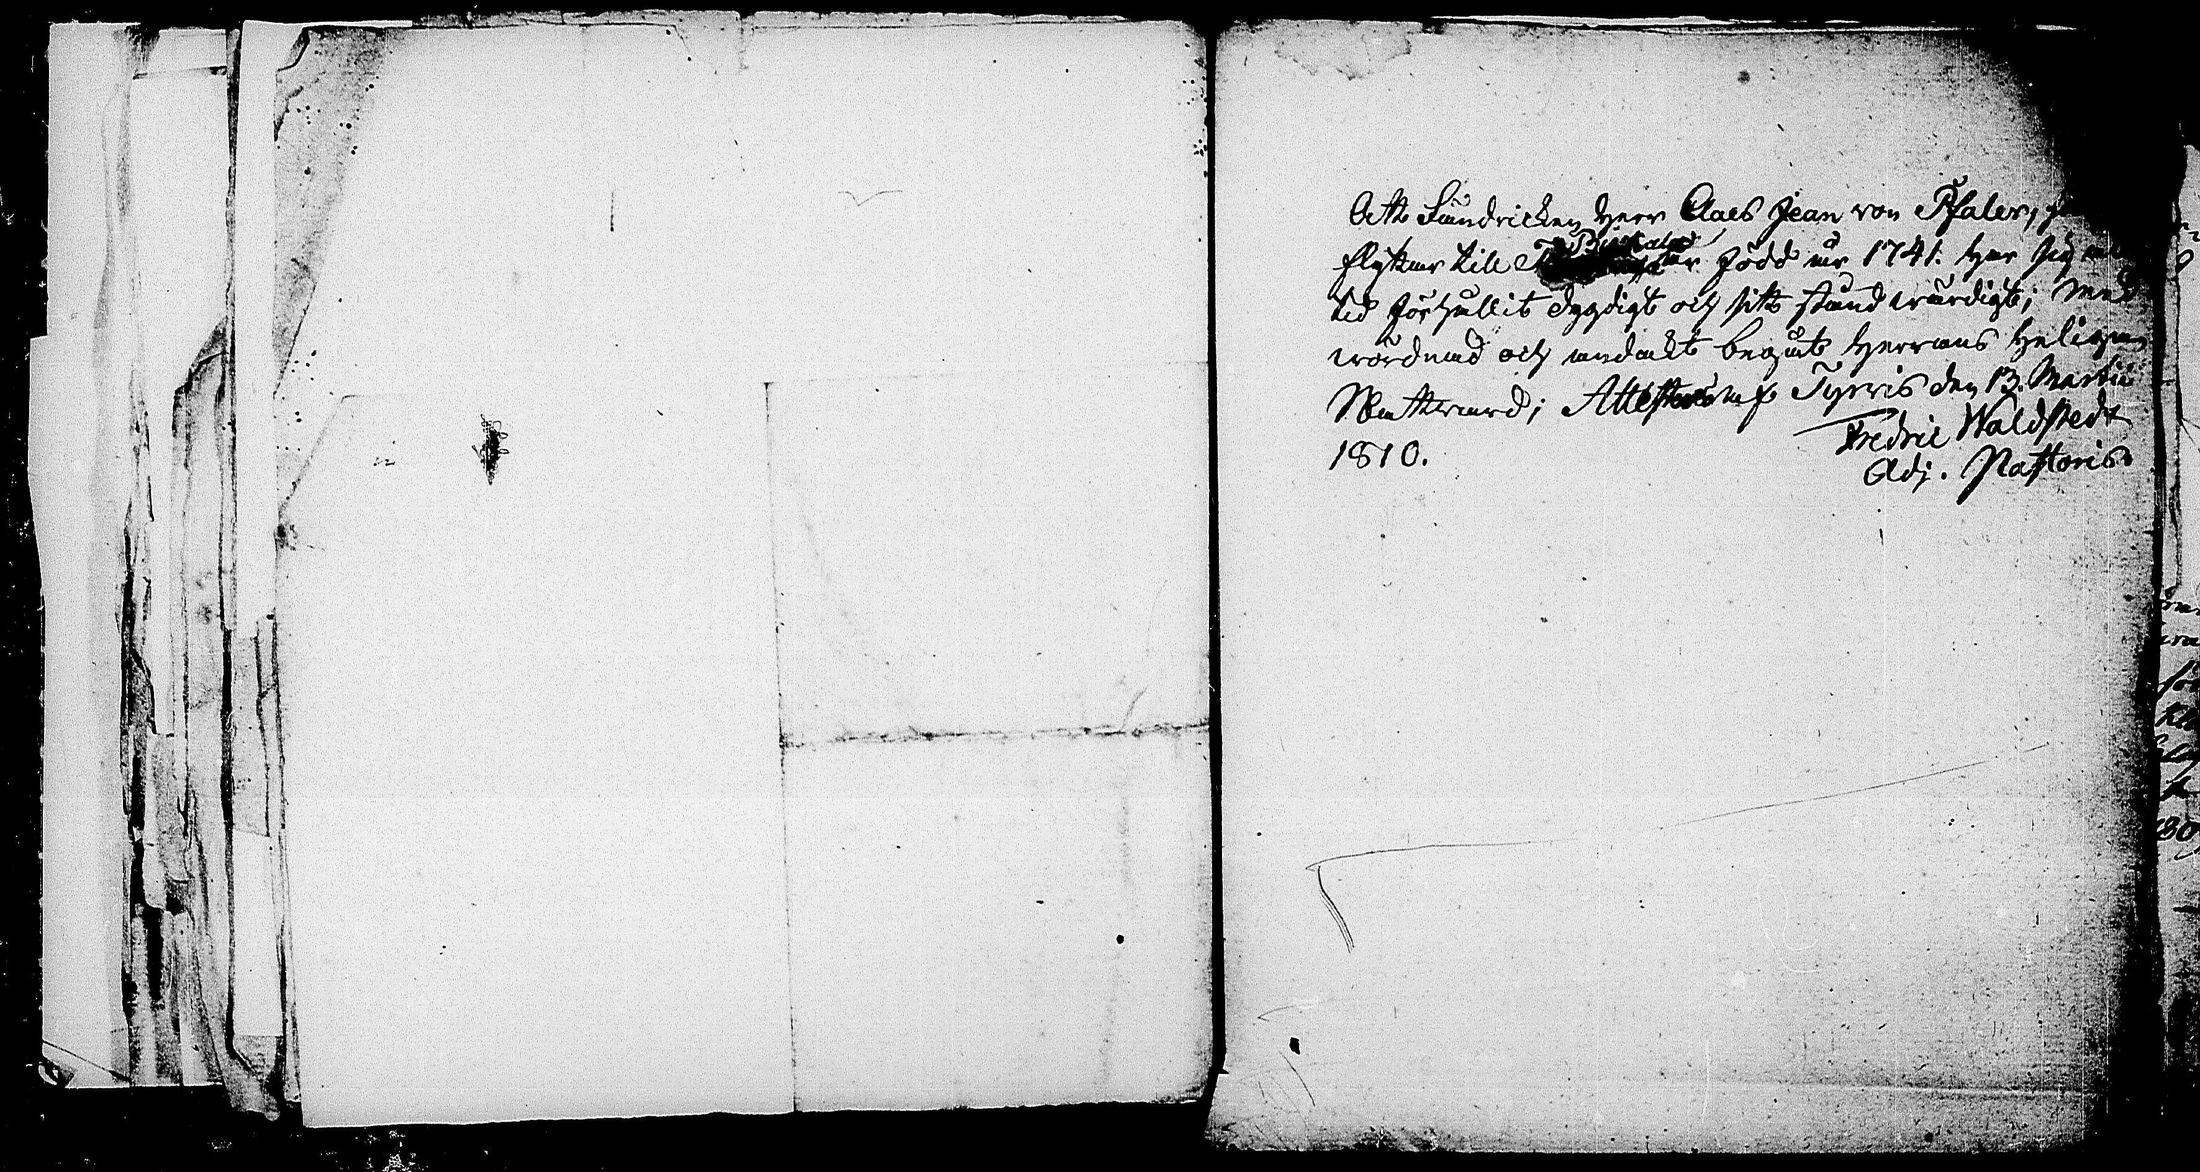 Att Fändricken Herr Claes Jean von Pfaler,
flyttar till Bjärtalot är född år 1741. har sig
tid förhållit dygdigt och sitt stånd wärdigt; med
wördnad och andackt begåt Herrans Helig
Nattward; Attesteras af Tyrvis den 13. Martii
1810.
Fredric Waldstedt
Adj. Pastoris.